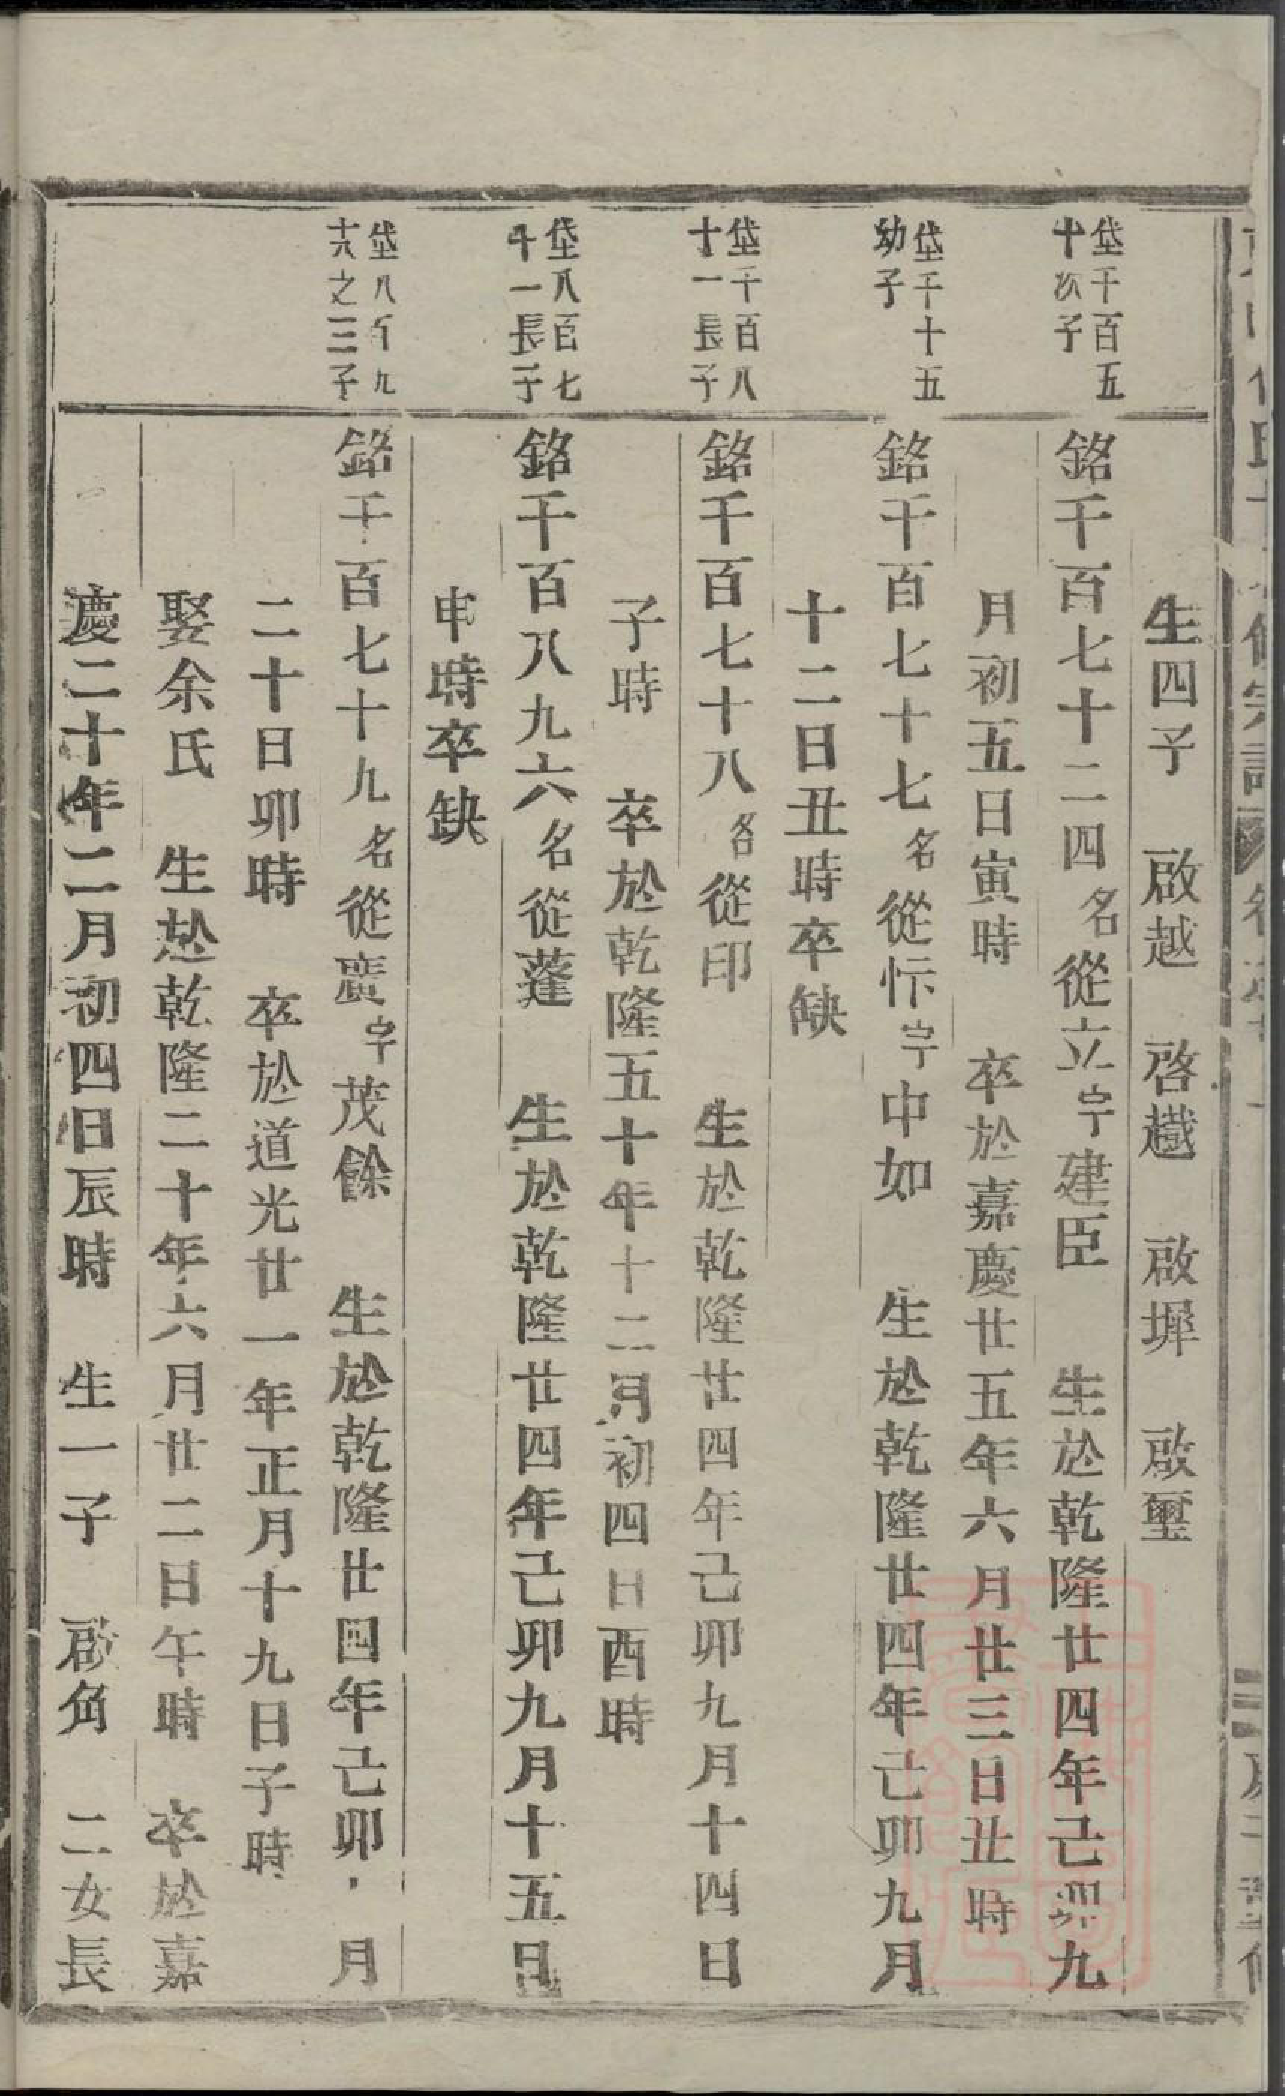 生四子 啟越 啓䟐 啟墀 啟璽
垈千百五
十次子
銘千百七十二四名從立字建臣 生於乾隆廿四年己卯九
月初五日寅時 卒於嘉慶廿五年六月廿三日丑時
垈千十五
幼子
銘千百七十七名從怀字中如 生於乾隆廿四年己卯九月
十二日丑時卒缺
垈千百八
十一長子
銘千百七十八名從印 生於乾隆廿四年己卯九月十四日
子時 卒於乾隆五十年十二月初四日酉時
垈八百七
十一長子
銘千百八九六名從蓬 生於乾隆廿四年己卯九月十五日
申時卒缺
垈八百九
十六之三子
銘千百七十九名從廣字茂餘 生於乾隆廿四年己卯 月
二十日卯時 卒於道光廿一年正月十九日子時
娶余氏 生於乾隆二十年六月廿二日午時 卒於嘉
慶二十年二月初四日辰時 生一子 啟角 二女長